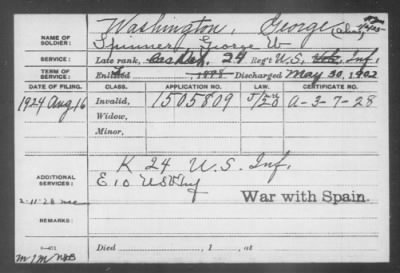 NAME OF SOLDIER: Washington, George (Alias)
Spinner, George W
SERVICE: Late rank, 24 Reg't U.S. Vols. Inf,
TERM OF SERVICE: Enlisted , 1898 Discharged May 30, 1902
DATE OF FILING. CLASS. APPLICATION NO. LAW. CERTIFICATE NO.
1924 Aug, 16 Invalid, 1505809 A-3-7-28
Widow,
Minor,
K 24 U.S. Inf,
ADDITIONAL SERVICES E 10 US
2-11-28 War with Spain.
REMARKS:
Died , 1 , at